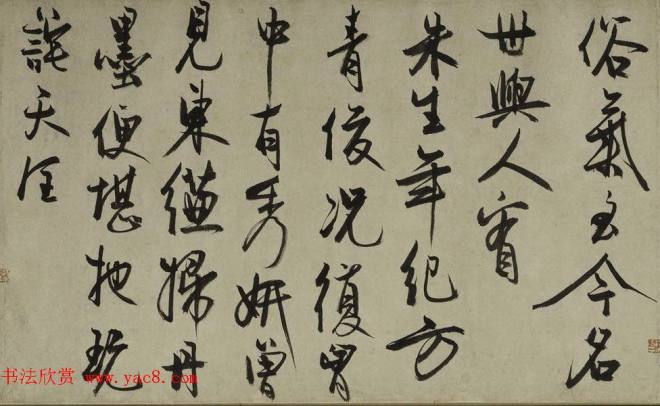 俗氣至今名
世與人
朱生年紀方
青俊况復胷
中有秀妍曾
見東縑掃丹
墨便堪把玩
詫天全
书法欣赏 www.yac8.com